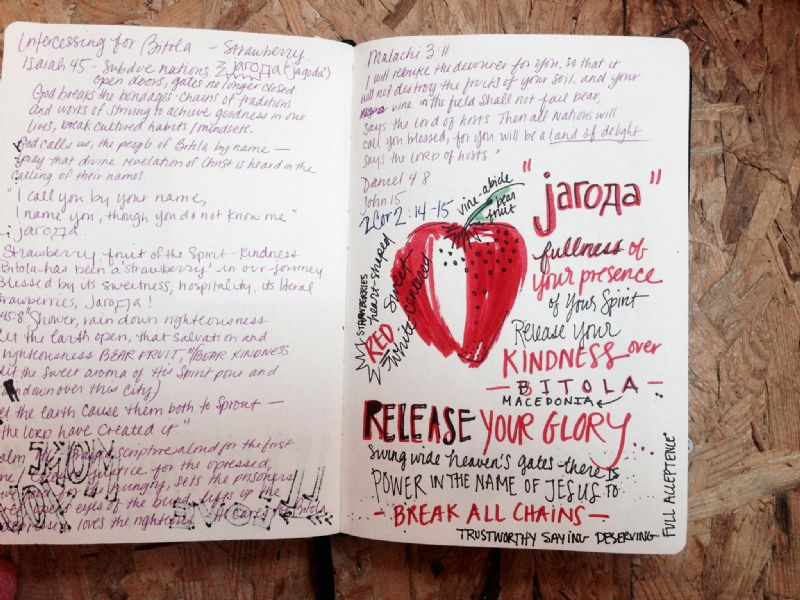 Intercessing for Bitola - Strawberry
Isaiah 45 - Subdue nations јагода ("jagoda")
open doors, gates no longer closed.
God breaks the bondages - chains of traditions
and works of striving to achieve goodness in our
lives, break cultured habits / mindsets.
God calls us, the people of Bitola by name —
pray that divine revelation of Christ is heard in the
calling of their names.
"I call you by your name,
I name you, though you do not know me"
јагода.
Strawberry - fruit of the Spirit - Kindness
Bitola has been a strawberry! in our journey
Blessed by its sweetness, hospitality, its literal
strawberries, јагода!
45:8 "Shower, rain down righteousness
let the earth open, that salvation and
righteousness BEAR FRUIT, "(BEAR KINDNESS
let the sweet aroma of His Spirit pour and
rain down over this city)
let the earth cause them both to sprout —
the LORD have created it"
scripture aloud for the first
justice for the oppressed,
food for hungry, sets the prisoners
opens eyes of the blind, lifts up the
loves the righteous
Malachi 3:11
I will rebuke the devourer for you, so that it
will not destroy the fruits of your soil, and your
vine in the field shall not fail bear,
says the Lord of hosts. Then all Nations will
call you blessed, for you will be a land of delight
says the LORD of hosts."
Daniel 4:8
John 15
2 Cor 2:14-15
vine - abide
& bear
fruit
"јагода"
STRAWBERRIES
heart-shaped
RED Sweet
White centered
fullness of
your presence
of Your Spirit
Release Your
KINDNESS over
— BITOLA —
MACEDONIA
RELEASE YOUR GLORY
Swing wide heaven's gates - there is
POWER IN THE NAME OF JESUS TO
— BREAK ALL CHAINS —
TRUSTWORTHY SAYING DESERVING
FULL ACCEPTENCE"